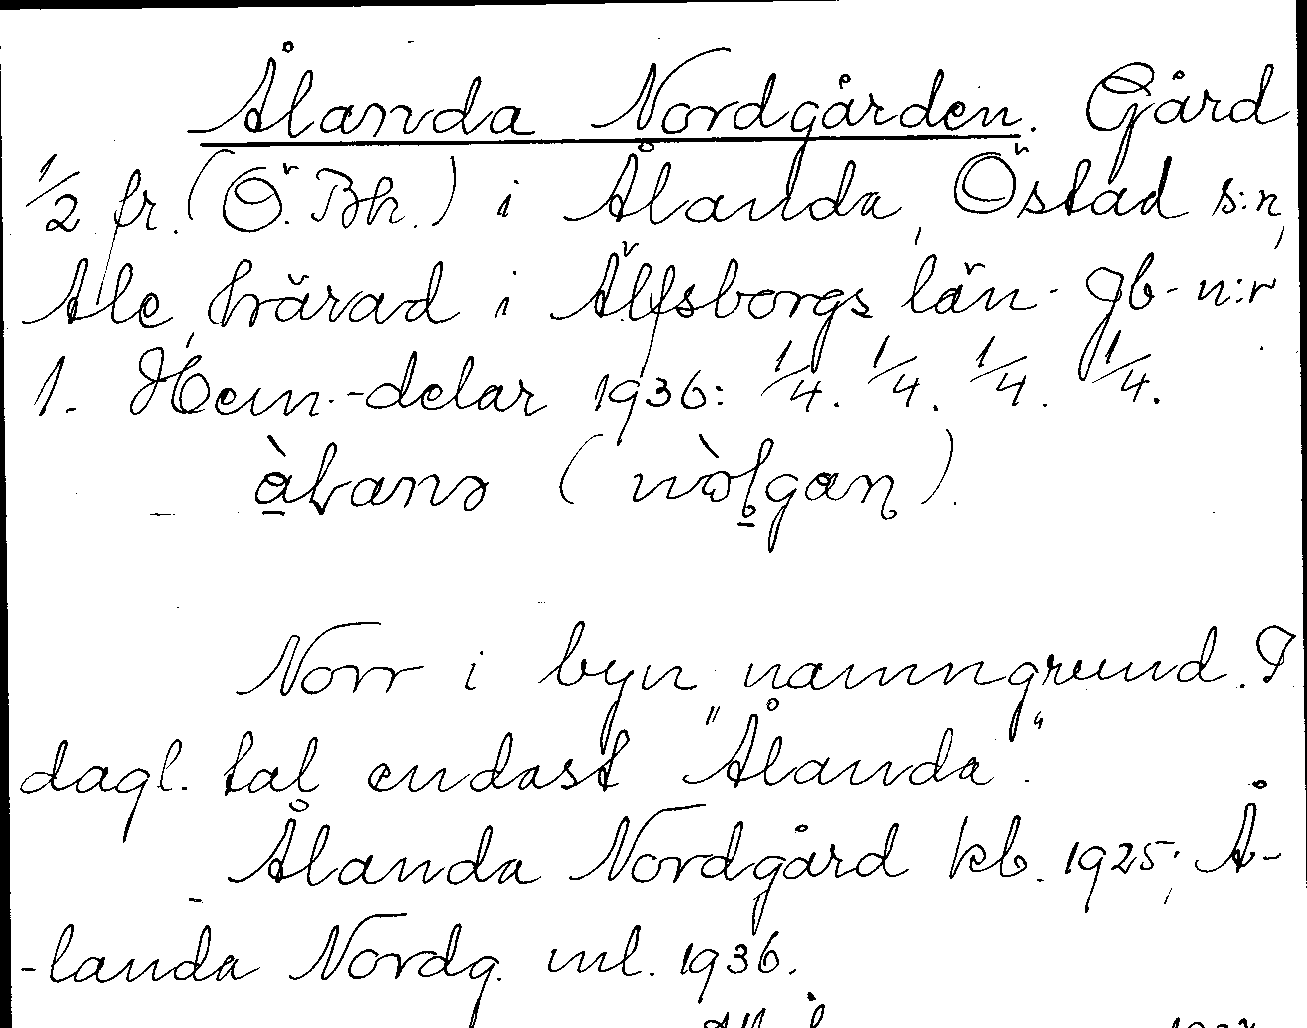 Ålanda Nordgården. Gård
1/2 fr. (Ö. Bh.) i Ålanda, Östad s:n,
Ale härad i Älfsborgs län. Jb-n:r
1. Hem.-delar 1936: 1/4. 1/4. 1/4. 1/4.
Norr i byn namngrund. I
dagl. tal endast "Ålanda".
Ålanda Nordgård kb. 1925; Å-
-landa Nordg. ml. 1936.